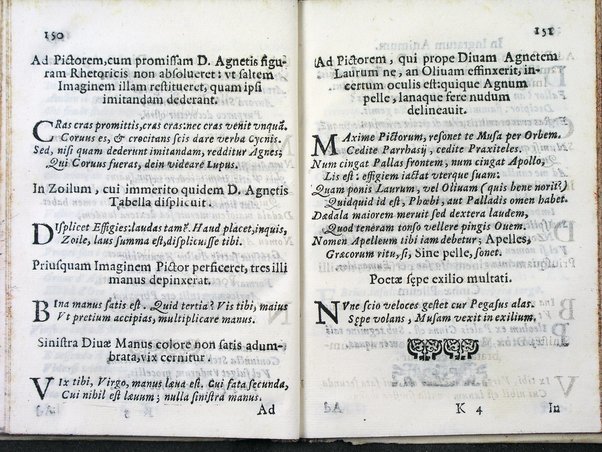 150
Ad Pictorem, cum promissam D. Agnetis figu-
ram Rhetoricis non absolueret: vt saltem
Imaginem illam restitueret, quam ipsi
imitandam dederant.
CRas cras promittis, cras cras: nec cras venit vnquã.
Coruus es, & crocitans scis dare verba Cycnis.
Sed, nisi quam dederunt imitandam, redditur Agnes;
Qui Coruus fueras, dein videare Lupus.
In Zoilum, cui immerito quidem D. Agnetis
Tabella displicuit.
DIsplicet Effigies: laudas tamẽ. Haud placet, inquis,
Zoile, laus summa est, displicuisse tibi.
Priusquam Imaginem Pictor perficeret, tres illi
manus depinxerat.
BIna manus satis est. Quid tertia? Vis tibi, maius
Vt pretium accipias, multiplicare manus.
Sinistra Diuæ Manus colore non satis adum-
brata, vix cernitur.
VIx tibi, Virgo, manus læua est. Cui fata secunda,
Cui nihil est læuum; nulla sinistra manus.
Ad
151
Ad Pictorem, qui prope Diuam Agnetem
Laurum ne, an Oliuam effinxerit, in-
certum oculis est: quique Agnum
pelle, lanaque fere nudum
delineauit.
MAxime Pictorum, resonet te Musa per Orbem.
Cedite Parrhasij, cedite Praxiteles.
Num cingat Pallas frontem, num cingat Apollo,
Lis est: effigiem iactat vterque suam:
Quam ponis Laurum, vel Oliuam (quis bene norit?)
Quidquid id est, Phœbi, aut Palladis omen habet.
Dædala maiorem meruit sed dextera laudem,
Quod teneram tonso vellere pingis Ouem.
Nomen Apelleum tibi iam debetur; Apelles,
Græcorum ritu, si, Sine pelle, sonet.
Poetæ sępe exilio multati.
NVnc scio veloces gestet cur Pegasus alas.
Sępe volans, Musam vexit in exilium.
K 4
In